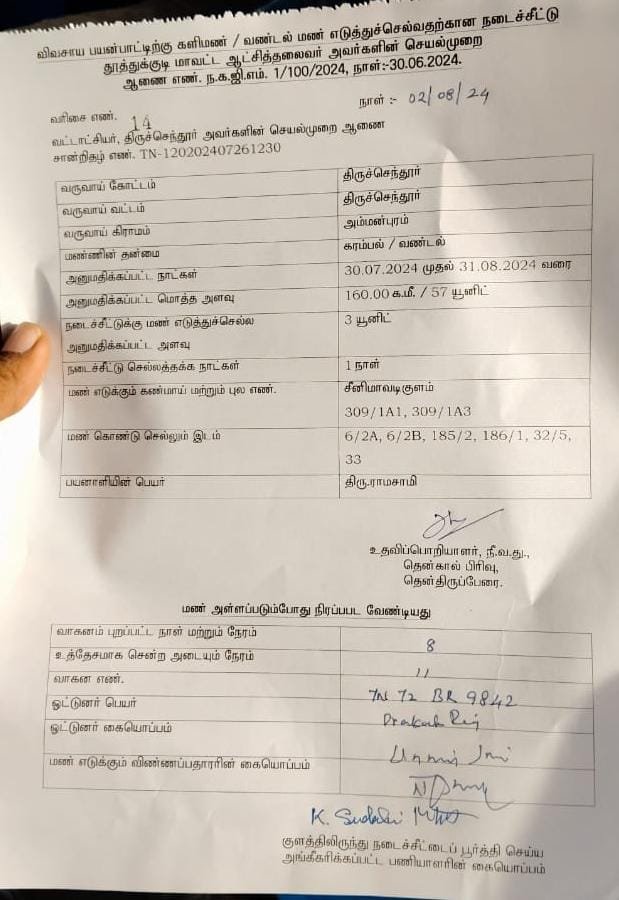 விவசாய பயன்பாட்டிற்கு களிமண் / வண்டல் மண் எடுத்துச்செல்வதற்கான நடைச்சீட்டு
தூத்துக்குடி மாவட்ட ஆட்சித்தலைவர் அவர்களின் செயல்முறை
ஆணை எண். ந.க.ஜி.எம். 1/100/2024, நாள்:-30.06.2024.
நாள் :- 02/08/24
வரிசை எண். 14
வட்டாட்சியர், திருச்செந்தூர் அவர்களின் செயல்முறை ஆணை
சான்றிதழ் எண். TN-120202407261230
வருவாய் கோட்டம் திருச்செந்தூர்
வருவாய் வட்டம் திருச்செந்தூர்
வருவாய் கிராமம் அம்மன்புரம்
மண்ணின் தன்மை கரம்பல் / வண்டல்
அனுமதிக்கப்பட்ட நாட்கள் 30.07.2024 முதல் 31.08.2024 வரை
அனுமதிக்கப்பட்ட மொத்த அளவு 160.00 க.மீ. / 57 யூனிட்
நடைச்சீட்டுக்கு மண் எடுத்துச்செல்ல 3 யூனிட்
அனுமதிக்கப்பட்ட அளவு
நடைச்சீட்டு செல்லத்தக்க நாட்கள் 1 நாள்
மண் எடுக்கும் கண்மாய் மற்றும் புல எண். சீனிமாவடிகுளம்
309/1A1, 309/1A3
மண் கொண்டு செல்லும் இடம் 6/2A, 6/2B, 185/2, 186/1, 32/5,
33
பயனாளியின் பெயர் திரு.ராமசாமி
உதவிப்பொறியாளர், நீ.வ.து.,
தென்கால் பிரிவு,
தென்திருப்பேரை.
மண் அள்ளப்படும்போது நிரப்பபட வேண்டியது
வாகனம் புறப்பட்ட நாள் மற்றும் நேரம் 8
உத்தேசமாக சென்ற அடையும் நேரம் 11
வாகன எண். TN 72 BR 9842
ஓட்டுனர் பெயர்
ஓட்டுனர் கையொப்பம்
மண் எடுக்கும் விண்ணப்பதாரரின் கையொப்பம்
குளத்திலிருந்து நடைச்சீட்டைப் பூர்த்தி செய்ய
அங்கீகரிக்கப்பட்ட பணியாளரின் கையொப்பம்